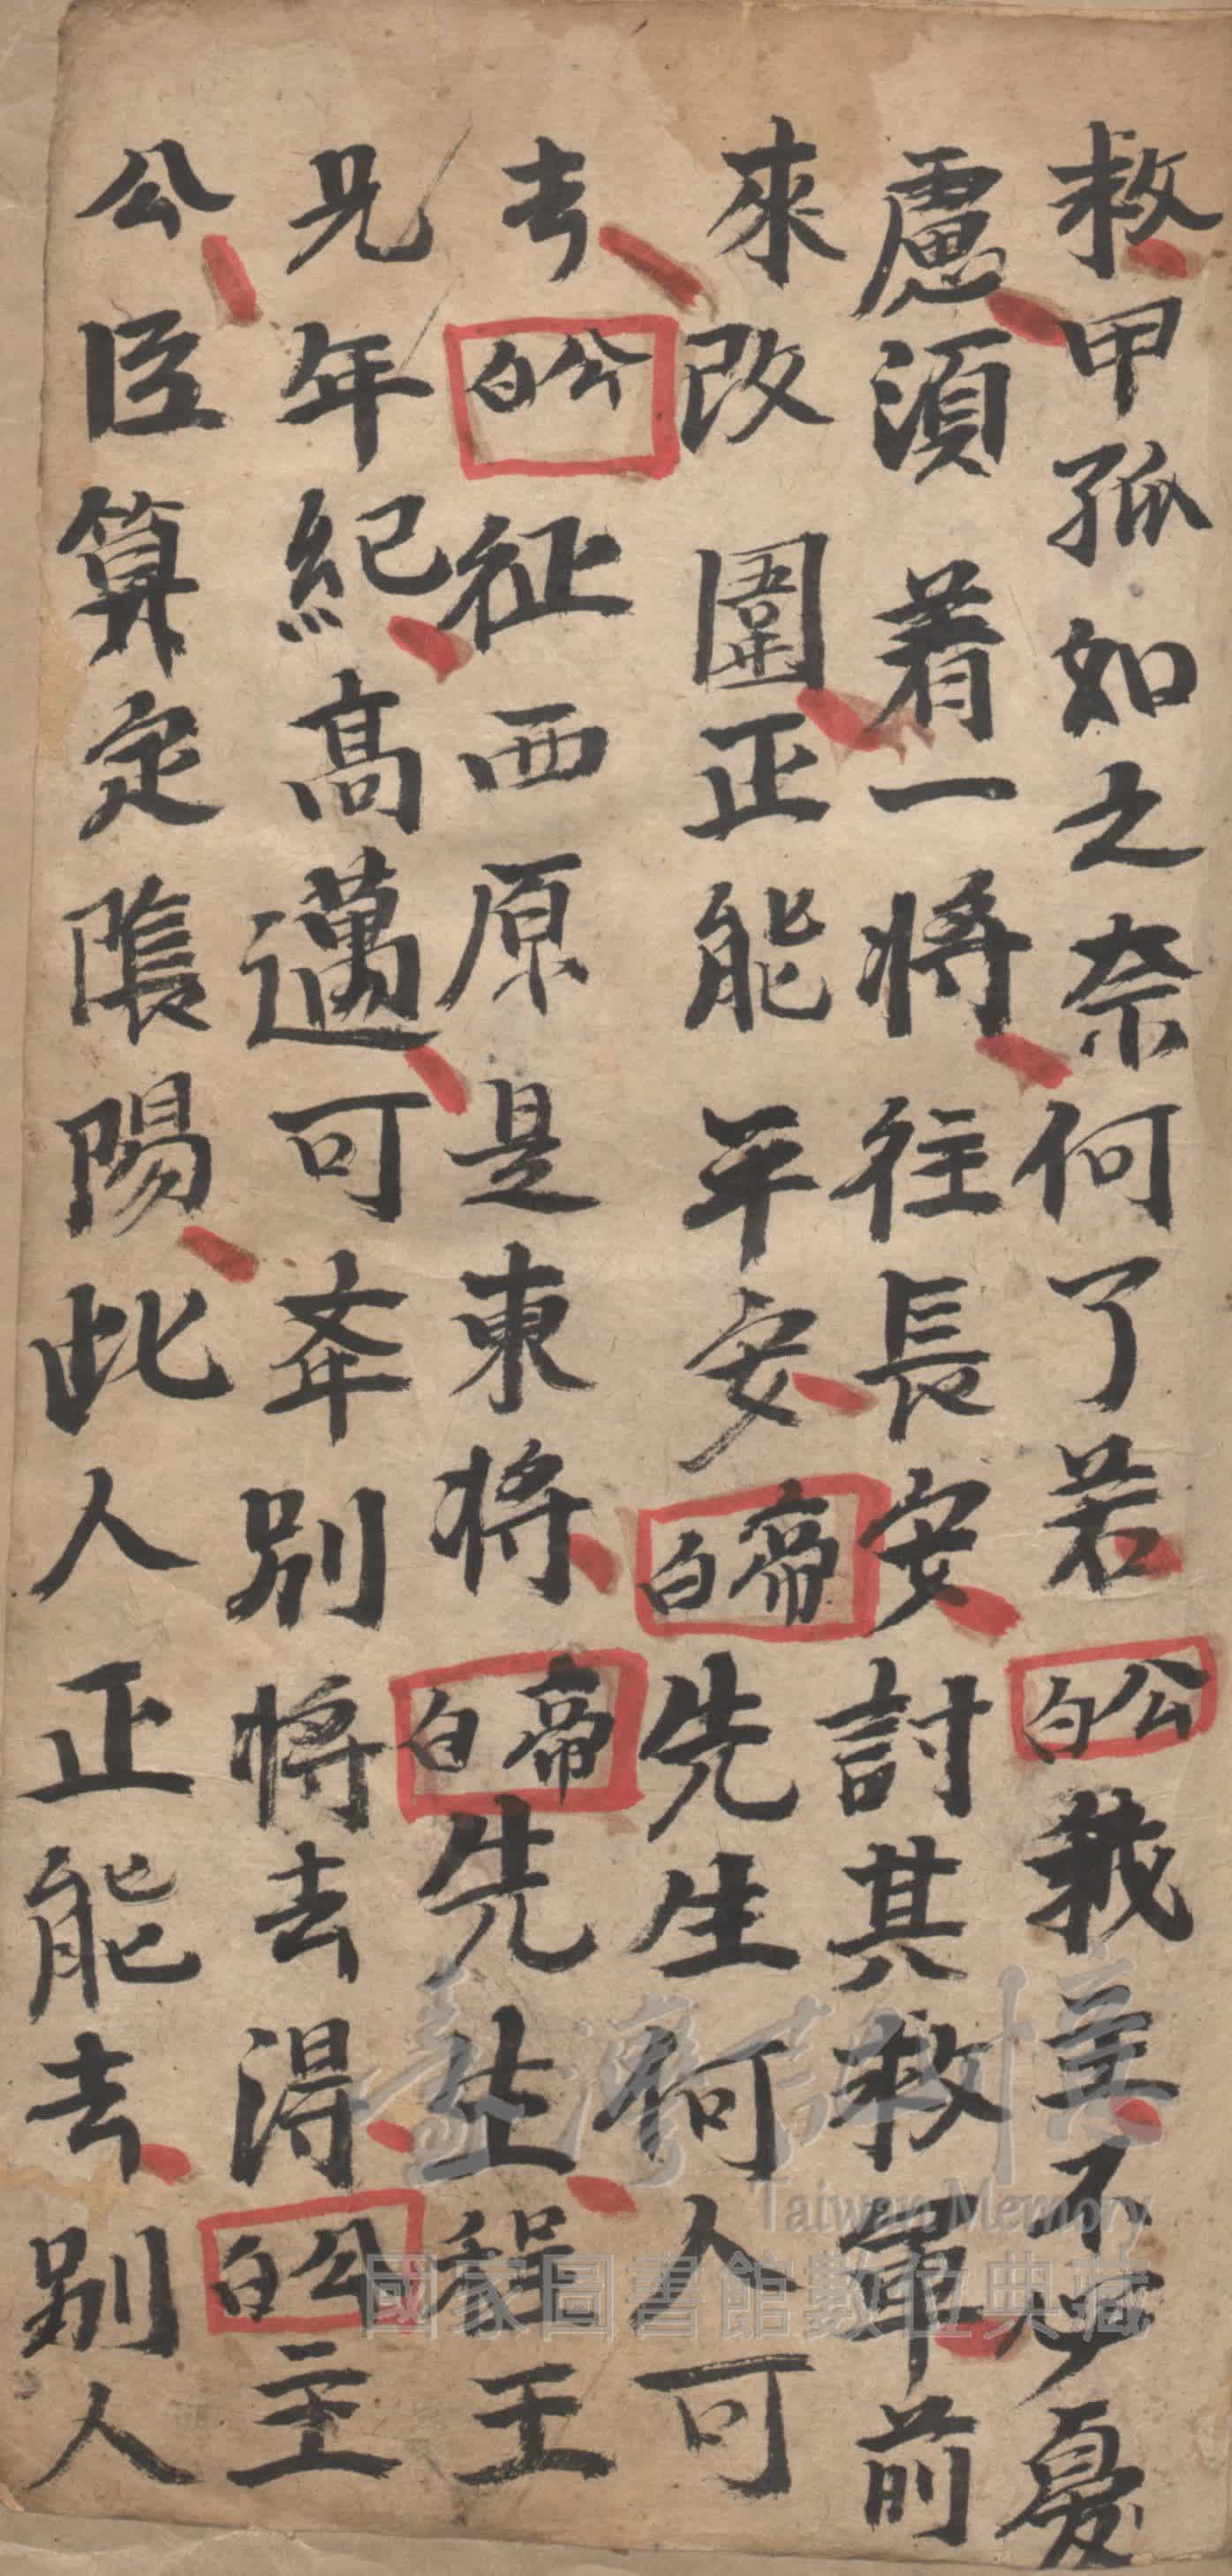 救甲孤如之奈何了若公白我主不必憂
慮須着一将往長安討其救軍前
來改圍正能平安帝白先生何人可
去公白征西原是東将帝白先生程王
兄年紀高邁可差別将去得公白主
公臣算定隂陽此人正能去別人
臺灣記憶
Taiwan Memory
國家圖書館數位典藏